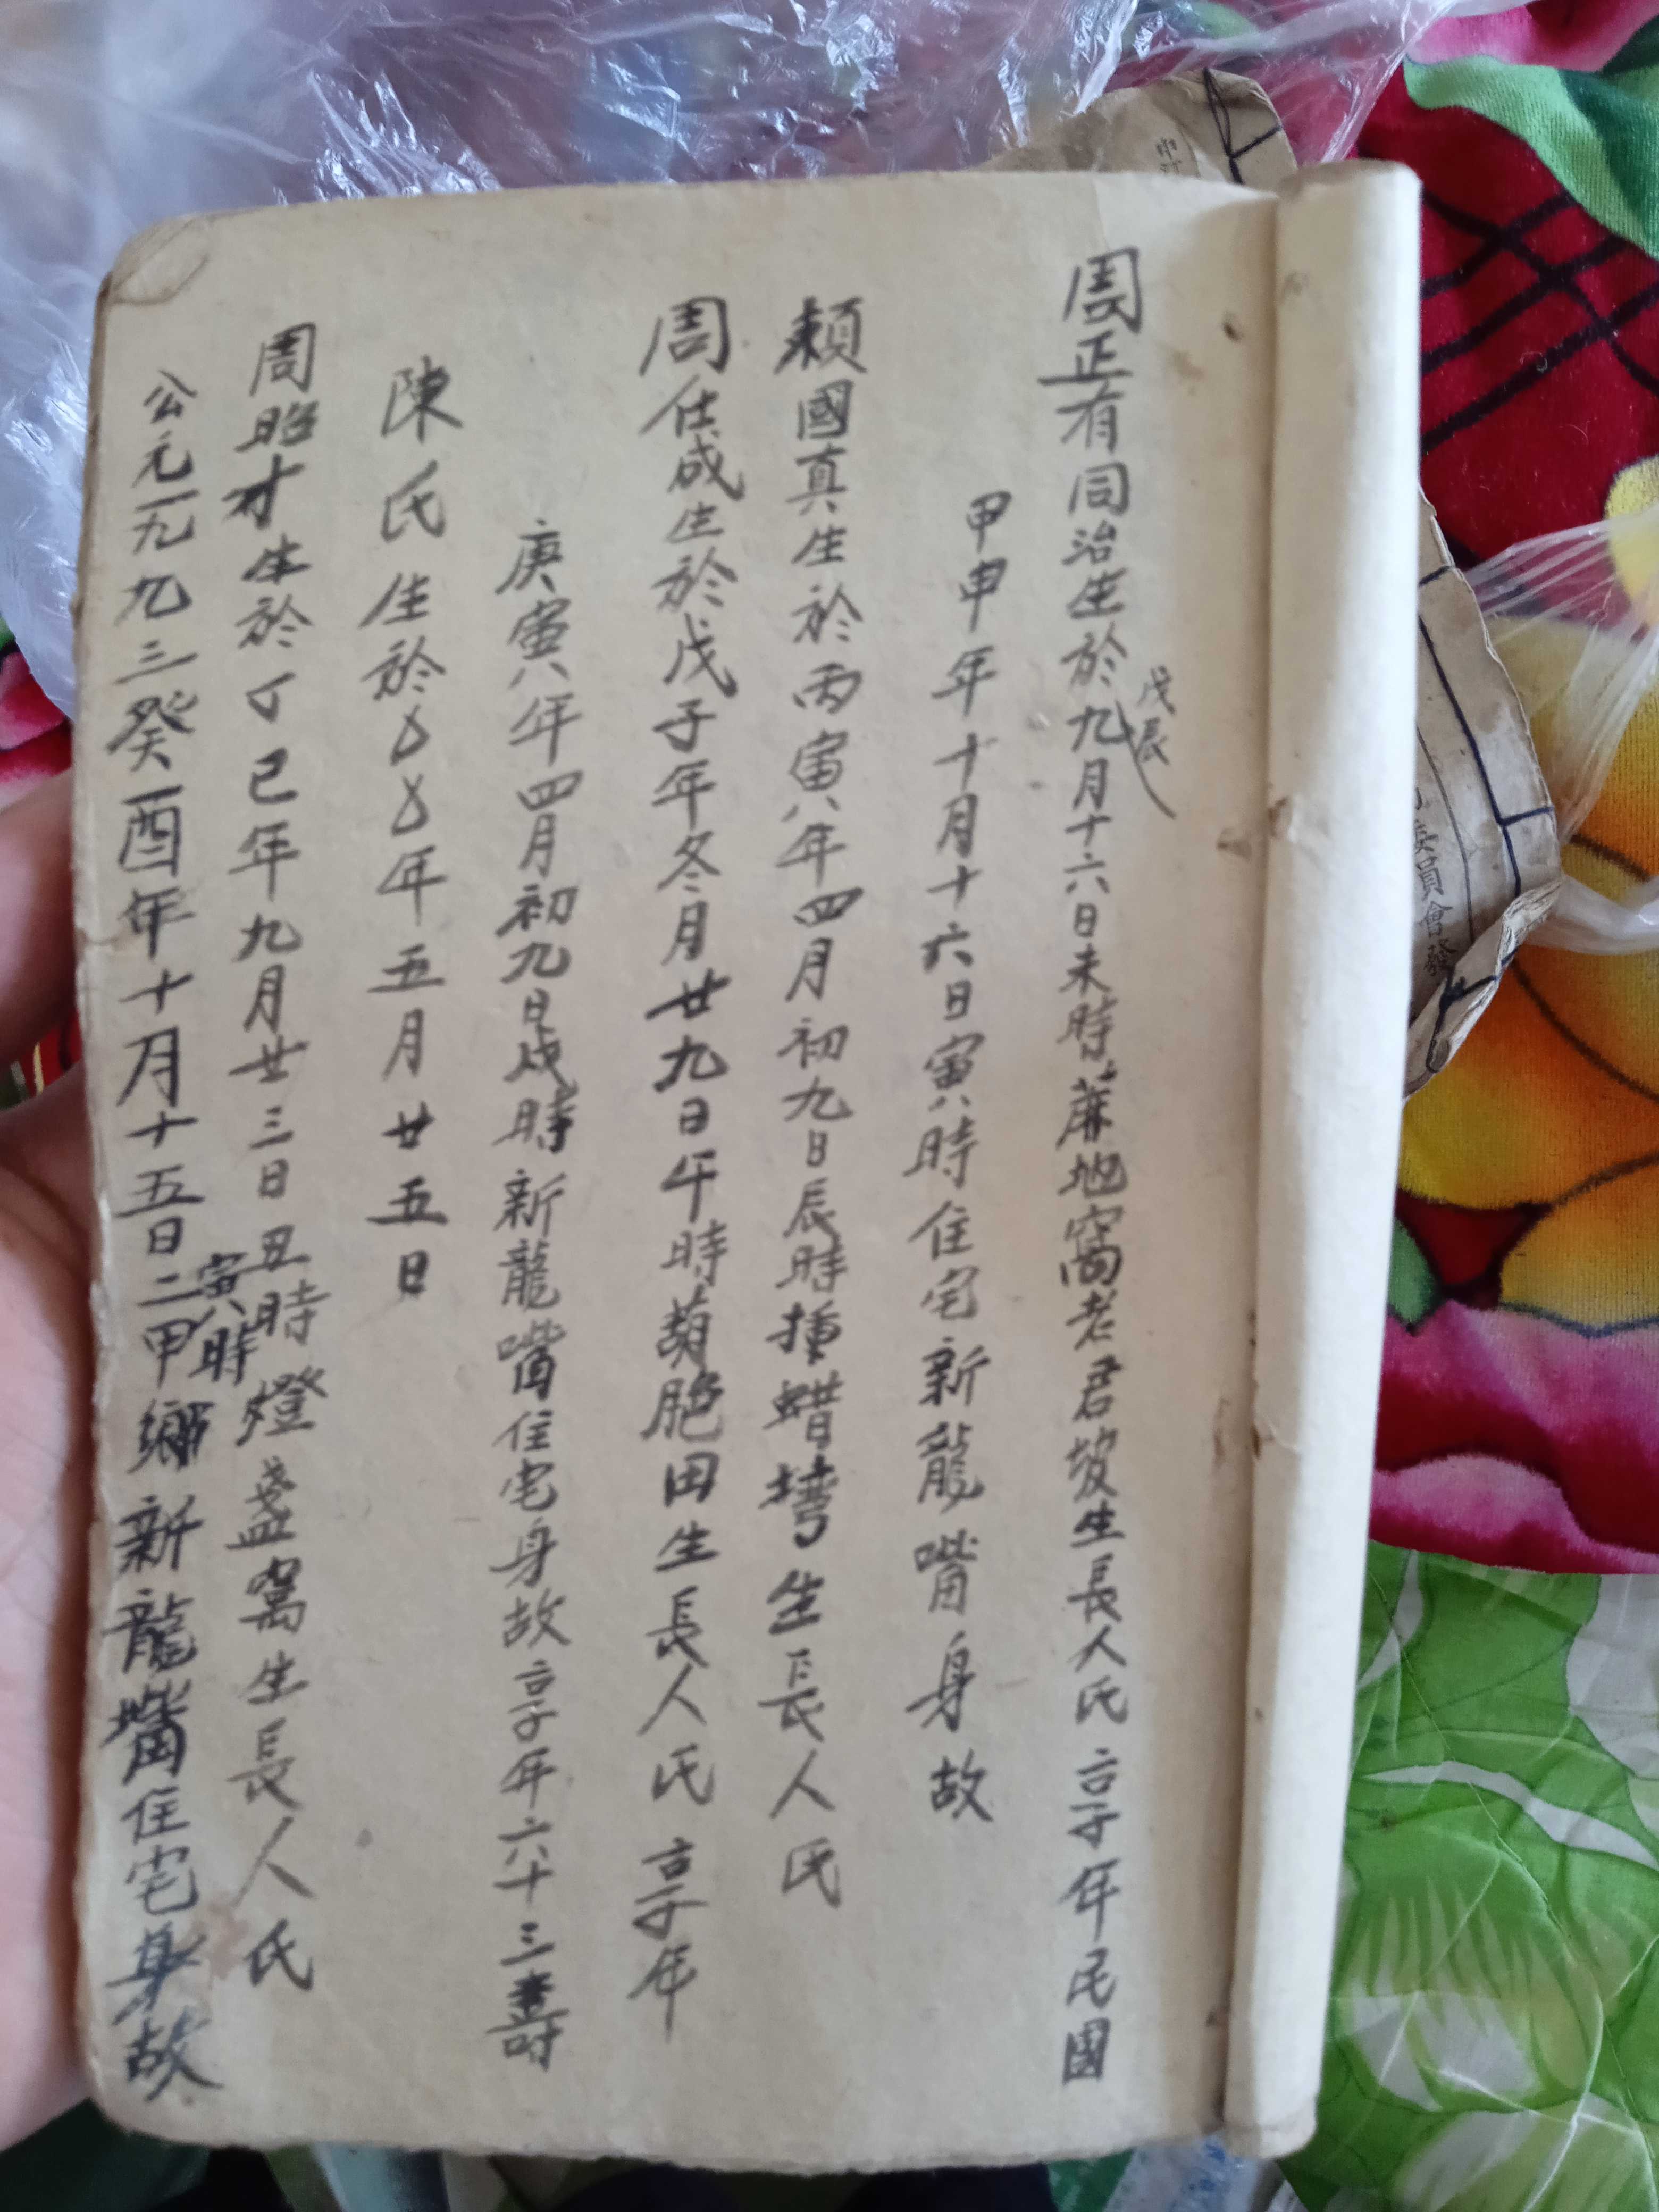 周正有同治生於戊辰九月十六日未時蔴地窩老君坡生長人氏享年民國
甲申年十月十六日寅時住宅新龍嘴身故
賴國真生於丙寅年四月初九日辰時捶蜡塆生長人氏
周仕成生於戊子年冬月廿九日午時葫胞田生長人氏享年
庚寅年四月初九日戌時新龍嘴住宅身故享年六十三壽
陳氏生於年五月廿五日
周昭才生於丁巳年九月廿三日丑時燈盞窩生長人氏
公元一九九三癸酉年十月十五日寅時二甲鄉新龍嘴住宅身故
委員會發